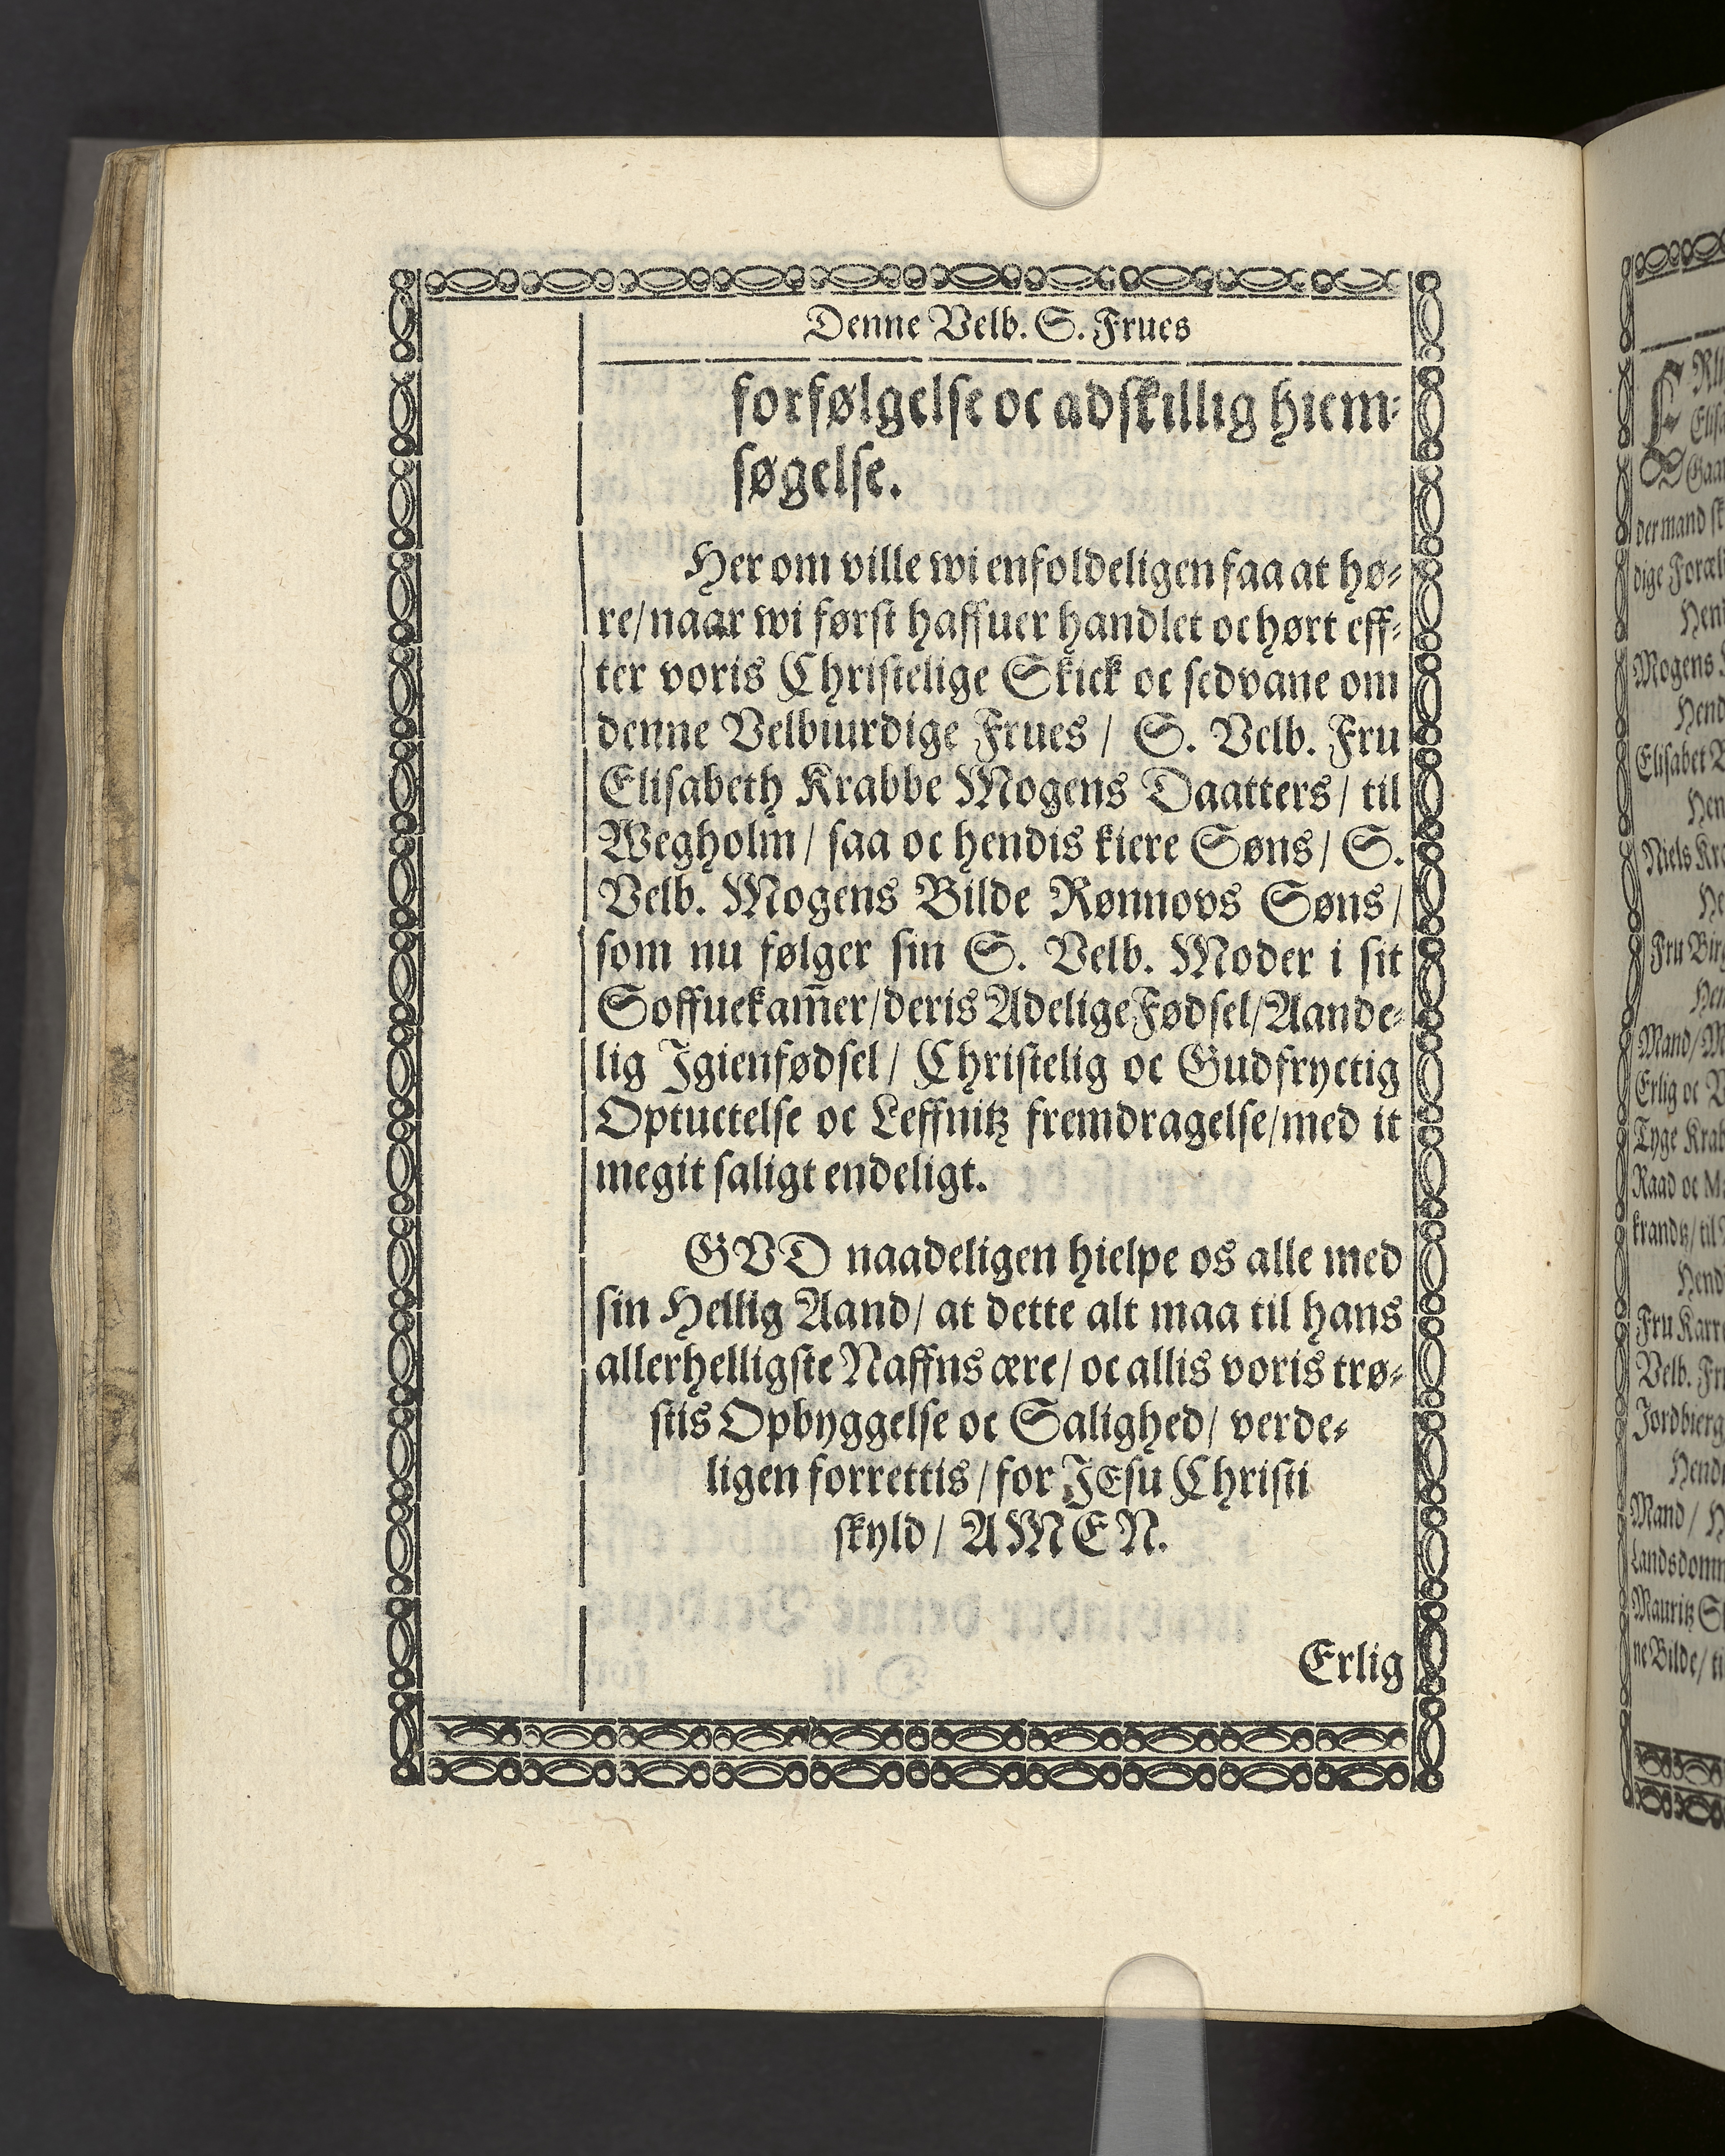 Denne Velb. S. Frues
forfølgelse oc adskillig hiem-
søgelse.
Her om ville wi enfoldeligen faa at hø-
re/ naar wi først haffuer handlet oc hørt eff-
ter voris Christelige Skick oc sedvane om
denne Velbiurdige Frues / S. Velb. Fru
Elisabeth Krabbe Mogens Daatters/ til
Wegholm / saa oc hendis kiere Søns/ S.
Velb. Mogens Bilde Rønnovs Søns/
som nu følger sin S. Velb. Moder i sit
Soffuekam̄er/deris Adelige Fødsel/Aande-
lig Igienfødsel/ Christelig oc Gudfryctig
Optuctelse oc Leffnitz fremdragelse/med it
megit saligt endeligt.
GVD naadeligen hielpe os alle med
sin Hellig Aand/ at dette alt maa til hans
allerhelligste Naffns ære/ oc allis voris trø-
stis Opbyggelse oc Salighed/ verde-
ligen forrettis /for JEsu Christi
skyld / AMEN.
Erlig
Elisa
Gaar
der mand
Mogens
Hend
Elisabet
Niels
Fru
Mand/
Erlig oc
Tyge
Raad oc
krandtz/ til
Hend
Fru
Velb.
Jordbierg
Mand /
Mauritz
ne Bilde/